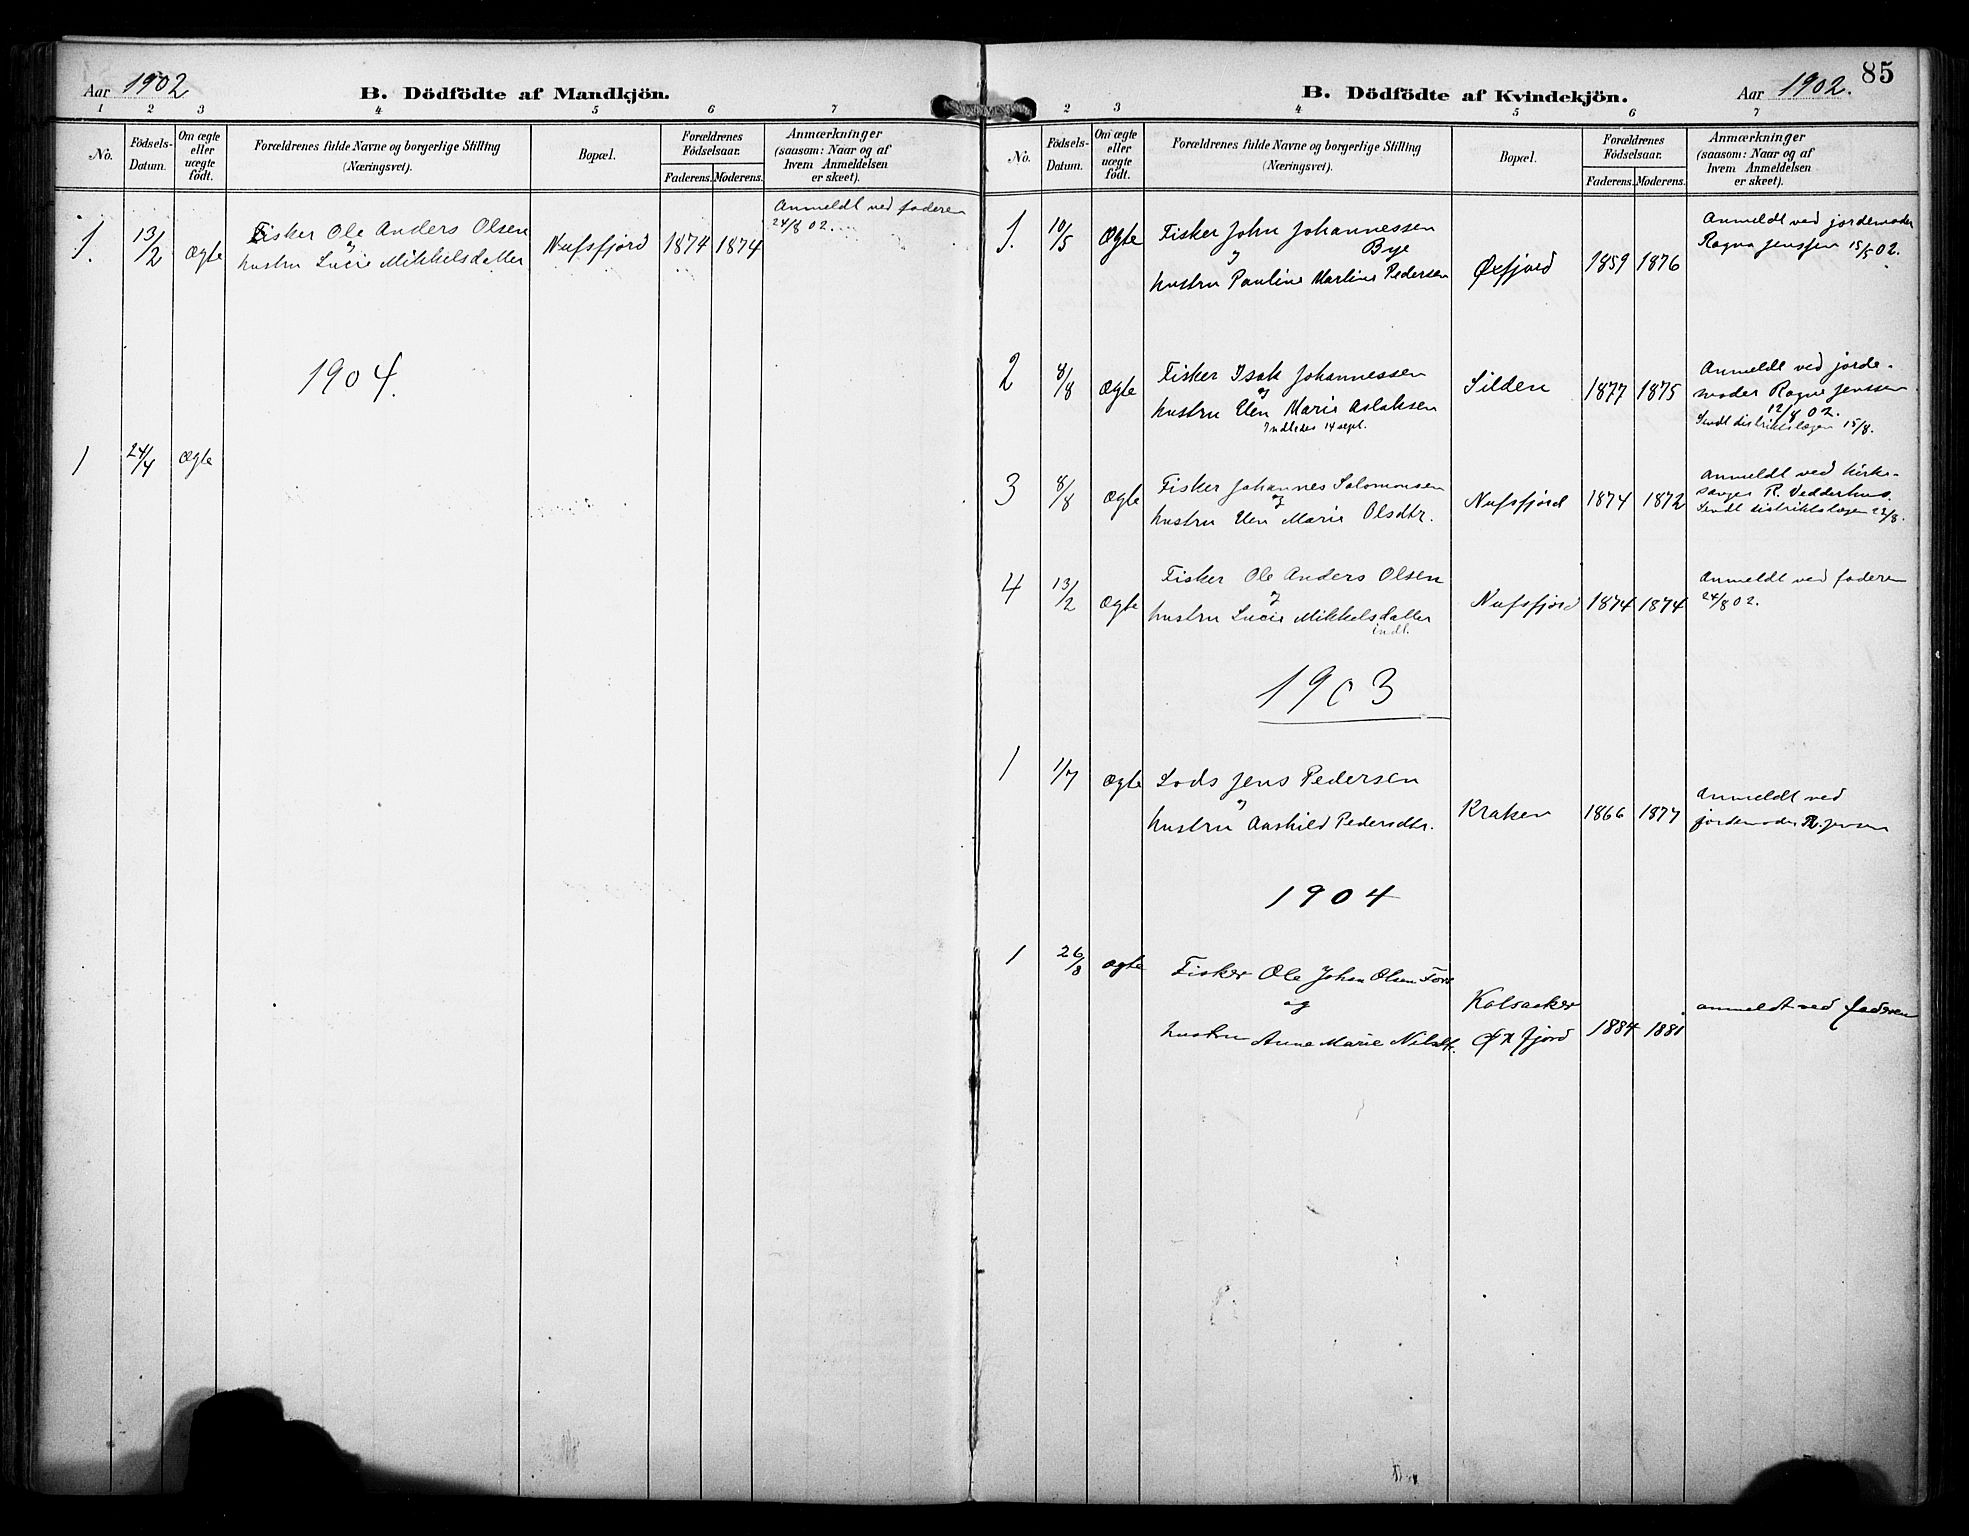 Aar 1902
B. Dödfödte af Mandkjön.
1 2 3 4 5 6 7
No.
Födsels-
Datum.
Om ægte
eller
uægte
födt.
Forældrenes fulde Navne og borgerlige Stilling
(Næringsvei).
Bopæl.
Forældrenes
Födselsaar.
Faderens. Moderens.
Anmærkninger
(saasom: Naar og af
hvem Anmeldelsen
er skeet).
1. 13/2 Ægte
Fisker Ole Anders Olsen
og
hustru Lucie Mikkelsdatter
Nufsfjord 1874 1874
Anmeldt ved faderen
24/8 02.
1904.
1 24/4 Ægte
85
B. Dödfödte af Kvindekjön.
Aar 1902.
2 3 4 5 6 7
No.
Födsels-
Datum.
Om ægte
eller
uægte
födt.
Forældrenes fulde Navne og borgerlige Stilling
(Næringsvei).
Bopæl.
Forældrenes
Födselsaar.
Faderens. Moderens.
Anmærkninger
(saasom: Naar og af
hvem Anmeldelsen
er skeet).
1. 10/5 Ægte
Fisker John Johannessen
og Bye
hustru Pauline Martine Pedersen
Øxfjord 1859 1876
Anmeldt ved jordemoder
Ragna Jenssen 15/5 02.
2 8/8 Ægte
Fisker Isak Johannessen
og
hustru Elen Marie Aslaksen
Indledes 14 sept.
Silden 1877 1875
Anmeldt ved jorde-
moder Ragna Jenssen
12/8 02.
Sendt distriktslægen 15/8.
3 8/8 Ægte
Fisker Johannes Salomonsen
og
hustru Elen Marie Olsdtr.
Nufsfjord 1874 1872
Anmeldt ved kirke-
sanger R. Vedderhus.
Sendt distriktslægen 22/8.
4 13/2 Ægte
Fisker Ole Anders Olsen
og
hustru Lucie Mikkelsdatter
indl.
Nufsfjord 1874 1874
Anmeldt ved faderen
24/8 02.
1903
1 1/7 Ægte
Lods Jens Pedersen
og
hustru Aashild Pedersdtr.
Kraken 1866 1877
Anmeldt ved
jordemoder R. Jensen
1904
1 26/8 ægte
Fisker Ole Johan Olsen
og
hustru Anne Marie
Kalsaaker
Øxfjord 1884 1881
anmeldt ved faderen